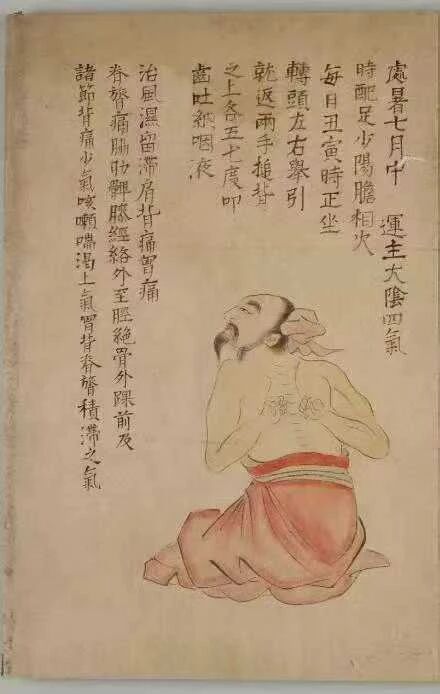 處暑七月中 運主太陰四氣
時配足少陽膽相火
每日丑寅時正坐
轉頭左右舉引
就返兩手搥背
之上各五七度叩
齒吐納咽液
治風濕留滯肩背痛胷痛
脊膂痛脇肋髀膝經絡外至脛絶骨外踝前及
諸節皆痛少氣咳嗽喘渴上氣胷背脊膂積滯之氣